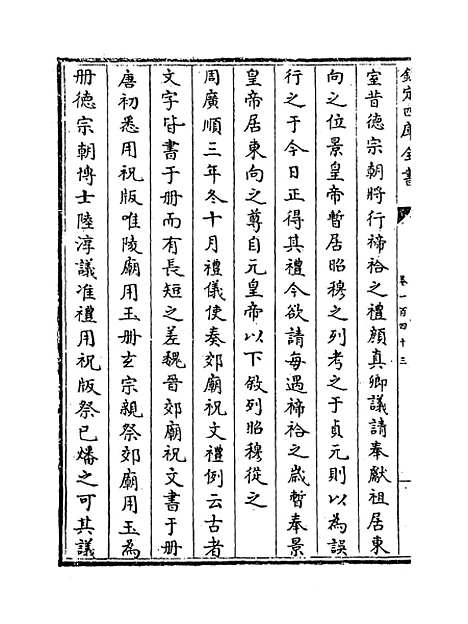 欽定四庫全書
卷一百四十三
室昔德宗朝將行禘祫之禮顔真卿議請奉獻祖居東
向之位景皇帝暫居昭穆之列考之于貞元則以為誤
行之于今日正得其禮今欲請每遇禘祫之歲暫奉景
皇帝居東向之尊自元皇帝以下敘列昭穆從之
周廣順三年冬十月禮儀使奏郊廟祝文禮例云古者
文字皆書于册而有長短之差魏晉郊廟祝文書于册
唐初悉用祝版唯陵廟用玉册玄宗親祭郊廟用玉為
册德宗朝博士陸淳議准禮用祝版祭已燔之可其議